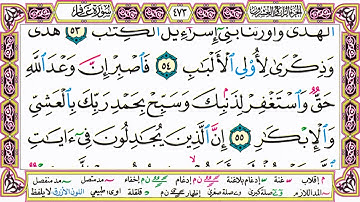 سورة غافر ٤٧٣ الجزء الرابع والعشرون
الهدى وأورثنا بنى إسرءيل الكتب ٥٣ هدى
وذكرى لأولى الألبب ٥٤ فاصبر إن وعد الله
حق واستغفر لذنبك وسبح بحمد ربك بالعشى
والإبكر ٥٥ إن الذين يجدلون فى ءايات